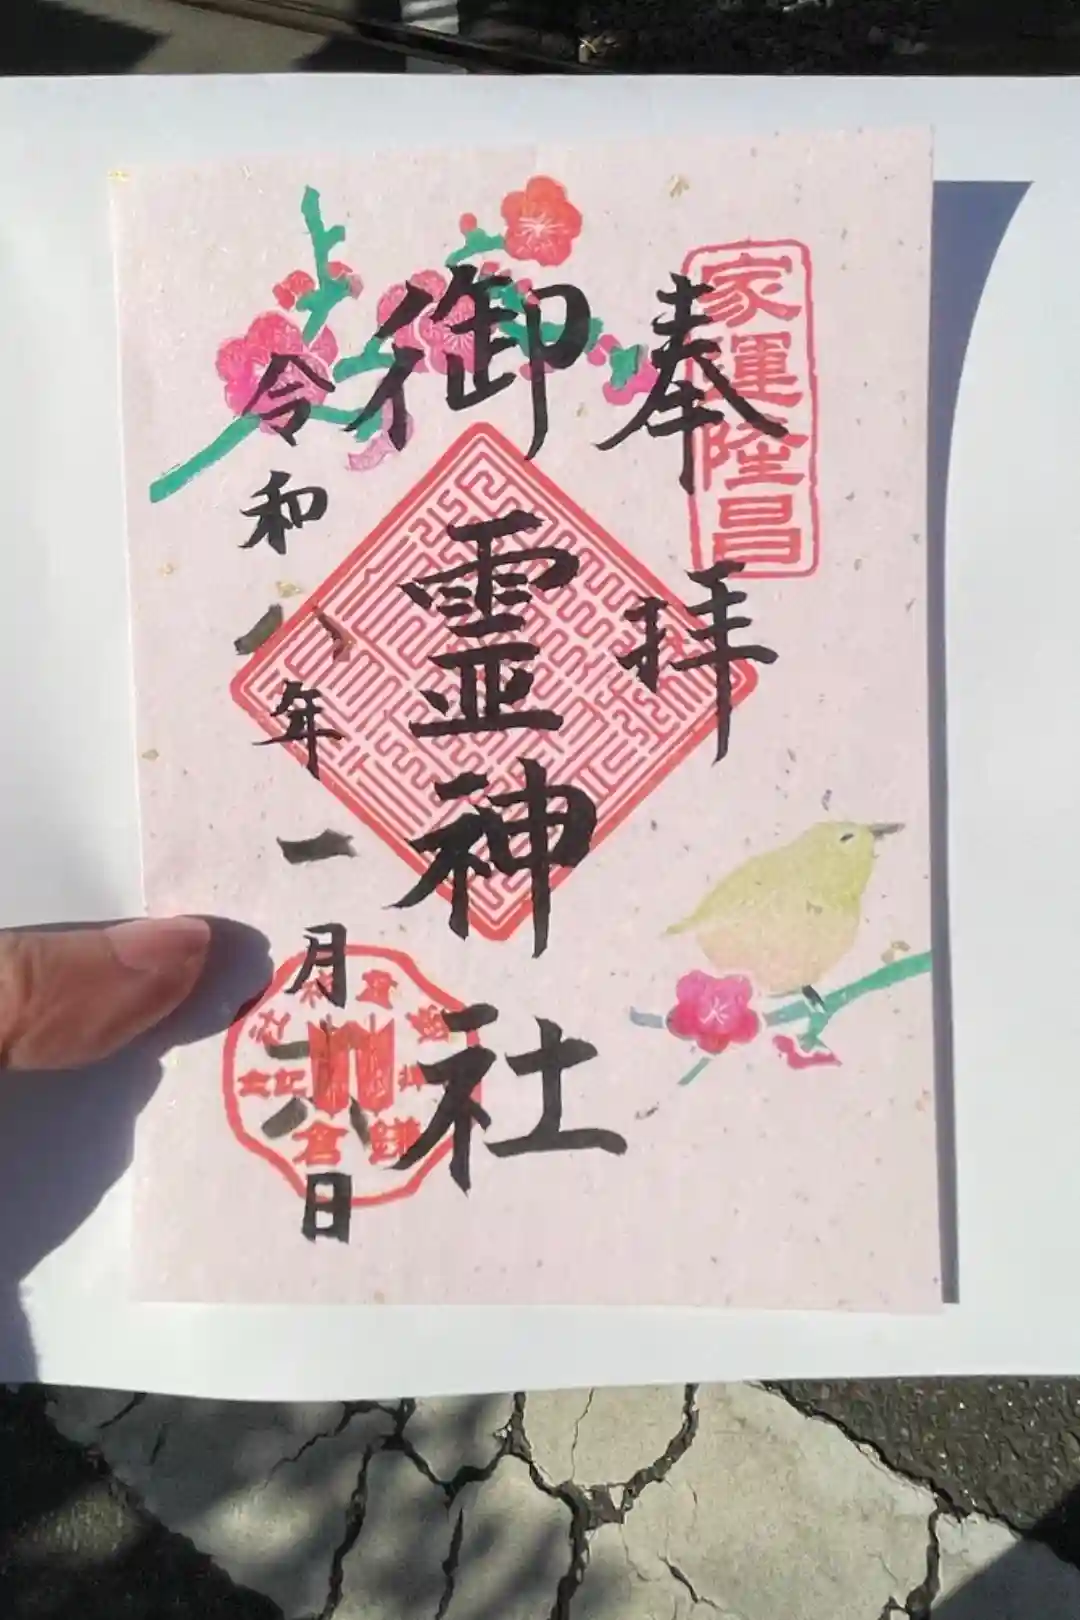 家運隆昌
奉拝
御霊神社
令和八年一月
日
鎌倉